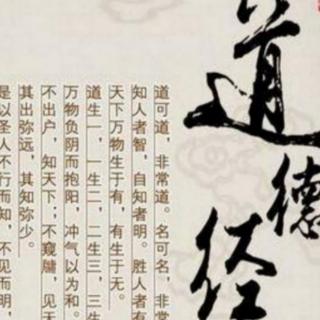 道德经
道可道，非常道。名可名，非常
知人者智，自知者明。胜人者有
天下万物生于有，有生于无。
道生一，一生二，二生三，三生
万物负阴而抱阳，冲气以为和。
不出户，知天下；不窥牖，见天
其出弥远，其知弥少。
是以圣人不行而知，不见而明，